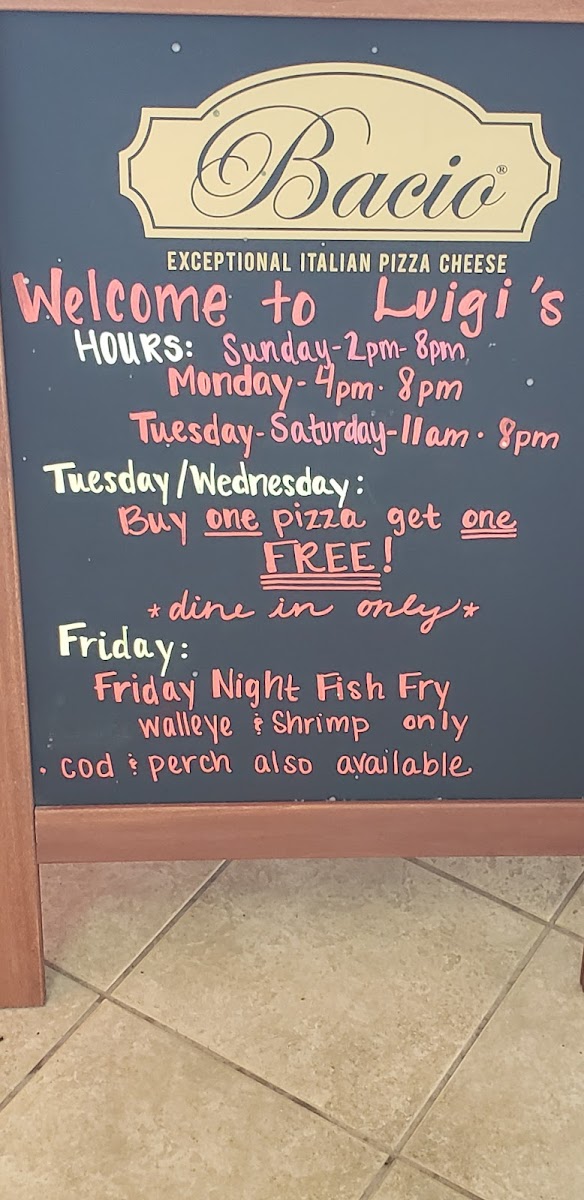 Bacio®
EXCEPTIONAL ITALIAN PIZZA CHEESE
Welcome to Luigi's
HOURS: Sunday-2pm-8pm
Monday-4pm-8pm
Tuesday-Saturday-11am-8pm
Tuesday/Wednesday:
Buy one pizza get one
FREE!
*dine in only*
Friday:
Friday Night Fish Fry
walleye & Shrimp only
• cod & perch also available